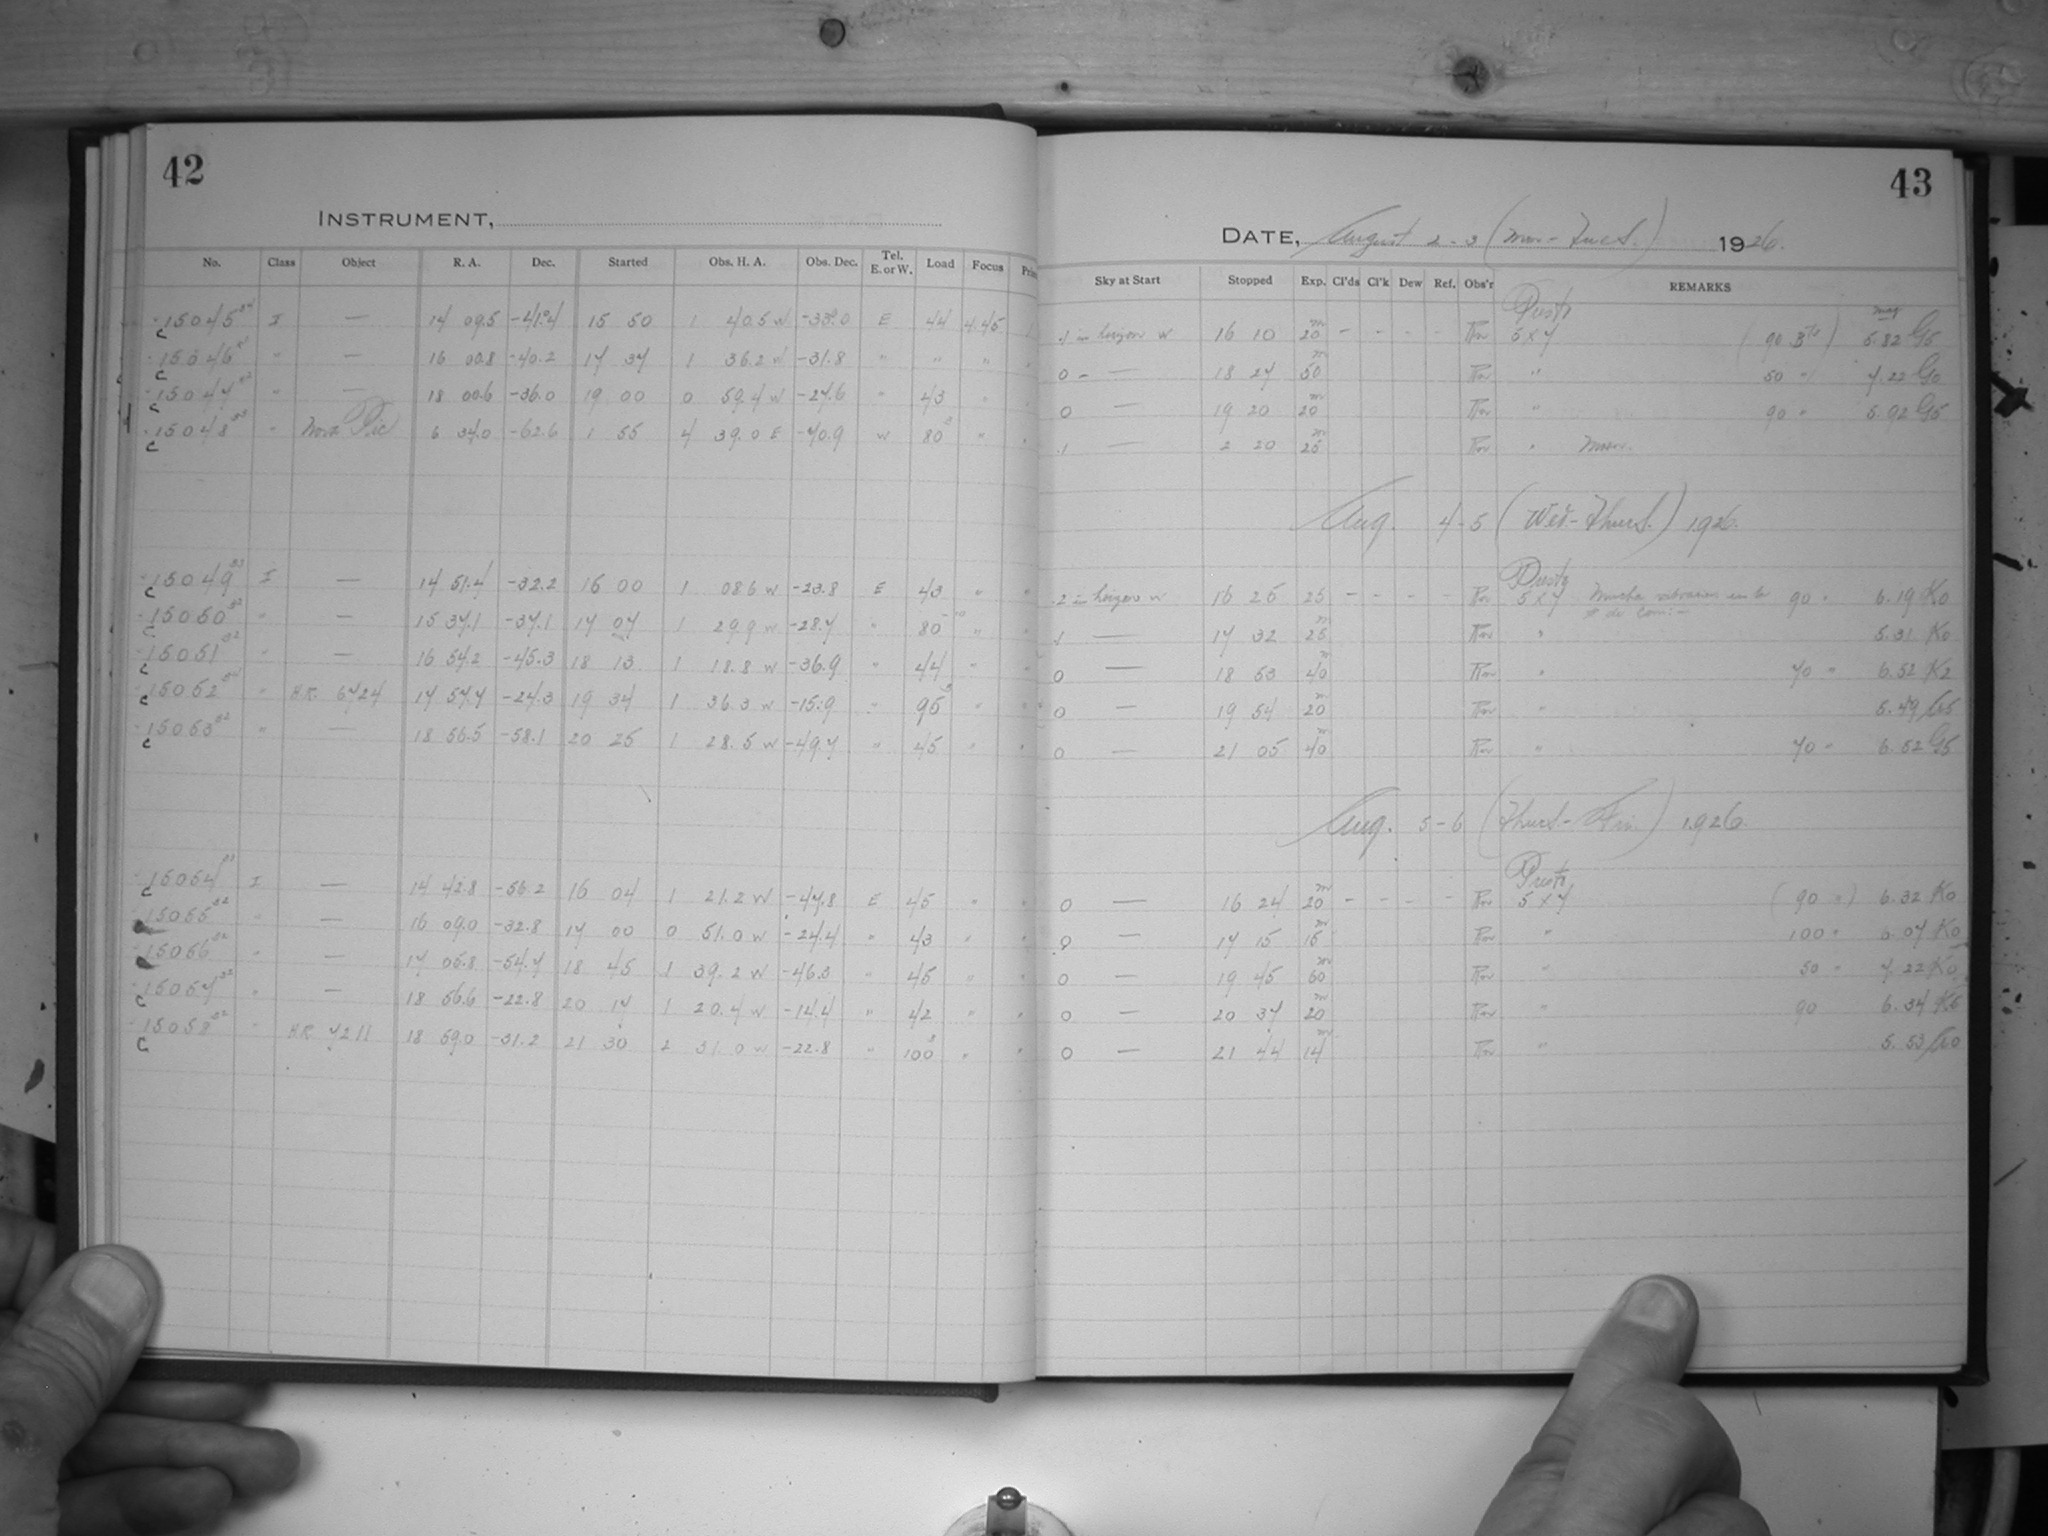 42
INSTRUMENT,
No. Class Object R. A. Dec. Started Obs. H. A. Obs. Dec. Tel. E. or W. Load Focus
15045 I — 14 09.5 -41.4 15 50 1 40.5 W -33.0 E 44 4.45
15046 " — 16 00.8 -40.2 17 37 1 36.2 W -31.8 " " "
15047 " — 18 00.6 -36.0 19 00 0 59.4 W -27.6 " 43 "
15048 " Nova Pic 6 34.0 -62.6 1 55 4 39.0 E W 80 "
15049 I — 14 51.4 -32.2 16 00 1 08.6 W -23.8 E 43 "
15050 " — 15 37.1 -37.1 17 07 1 29.9 W -28.7 " 80 "
15051 " — 16 54.2 -45.3 18 13 1 18.8 W -36.9 " 44 "
15052 " H.R. 6724 17 57.7 -24.3 19 34 1 36.3 W -15.9 " 95 "
15053 " — 18 56.5 -58.1 20 25 1 28.5 W -49.7 " 45 "
15054 I — 14 42.8 -56.2 16 04 1 21.2 W -47.8 E 45 "
15055 " — 16 09.0 -32.8 17 00 0 51.0 W -24.4 " 43 "
15056 " — 17 05.8 -54.7 18 45 1 39.2 W -46.3 " 45 "
15057 " — 18 56.6 -22.8 20 17 1 20.4 W -14.4 " 42 "
15058 " H.R. 7211 18 59.0 -31.2 21 30 2 31.0 W -22.8 " 100 "
43
DATE, August 2-3 (Mon-Tues.) 1926.
Sky at Start Stopped Exp. Cl'ds Cl'k Dew Ref. Obs'r REMARKS
.1 in horizon W 16 10 20 m - - - - 5x7 (90 Bts) mag 5.82 G5
0 — 18 27 50 m " 50 " 7.22 G0
0 — 19 20 20 m " 90 " 5.92 G5
.1 — 2 20 25 m " Moon.
Aug. 4-5 (Wed-Thurs.) 1926.
.2 in horizon W 16 25 25 - - - - 5x7 90 " 6.19 K0
.1 — 17 32 25 m " 5.31 K0
0 — 18 53 40 m " 70 " 6.52 K2
0 — 19 54 20 m " 5.49
0 — 21 05 40 m " 70 " 6.52 G5
Aug. 5-6 (Thurs-Fri.) 1926.
0 — 16 24 20 m - - - - 5x7 (90 ") 6.32 K0
0 — 17 15 15 m " 100 " 6.07 K0
0 — 19 45 60 m " 50 " 7.22 K0
0 — 20 37 20 m " 90 6.34 K5
0 — 21 44 14 m " 5.53